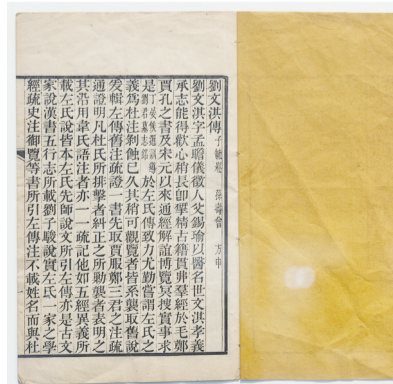 劉文淇傳子毓崧 孫壽曾 方申
劉文淇字孟瞻儀徵人父錫瑜以醫名世文淇孝義
承志能得歡心稍長卽擊精古籍貫弗羣經於毛鄭
賈孔之書及宋元以來通經解誼博覽冥搜實事求
是丁晏候選訓導劉君墓志銘於左氏傳致力尤勤嘗謂左氏之
義爲杜注剝蝕已久其稍可觀覽者皆系襲取舊說
爰輯左傳舊注疏證一書先取賈服鄭三君之注疏
通證明凡杜氏所排擊者糾正之所勦襲者表明之
其沿用韋氏語注者亦一一疏記他如五經異義所
載左氏說皆本左氏先師說文所引左傳亦是古文
家說漢書五行志所載劉子駿說實左氏一家之學
經疏史注御覽等書所引左傳注不載姓名而與杜